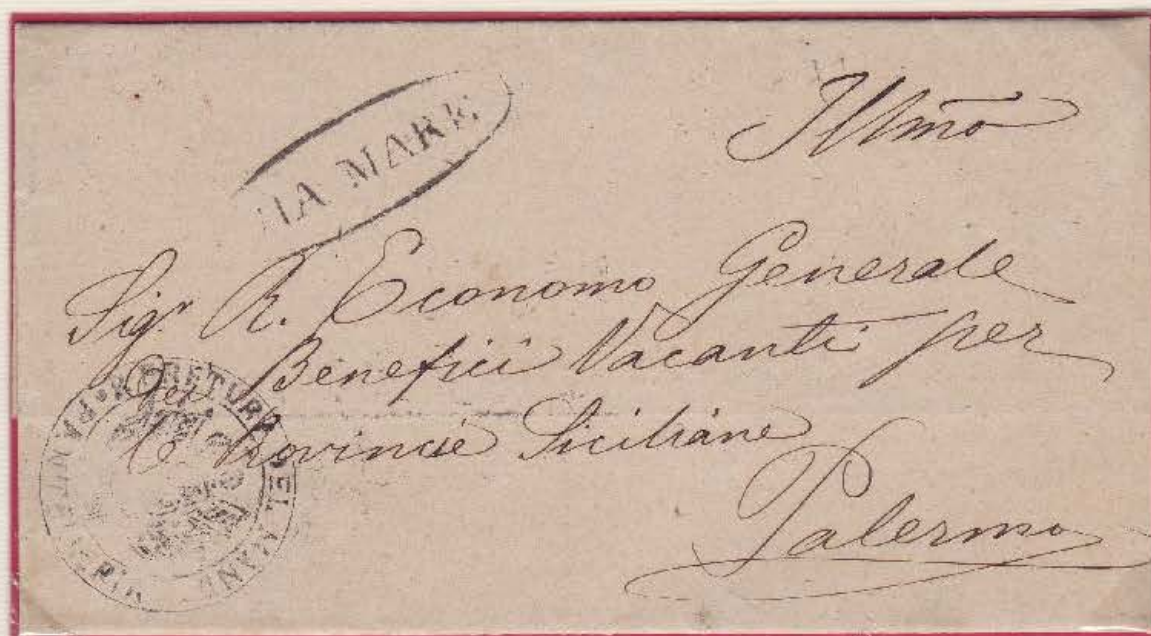 VIA MARE
Illmo
Sigr R. Economo Generale
dei Benefici Vacanti per
le Provincie Siciliane
Palermo
R. PRETURA DEL